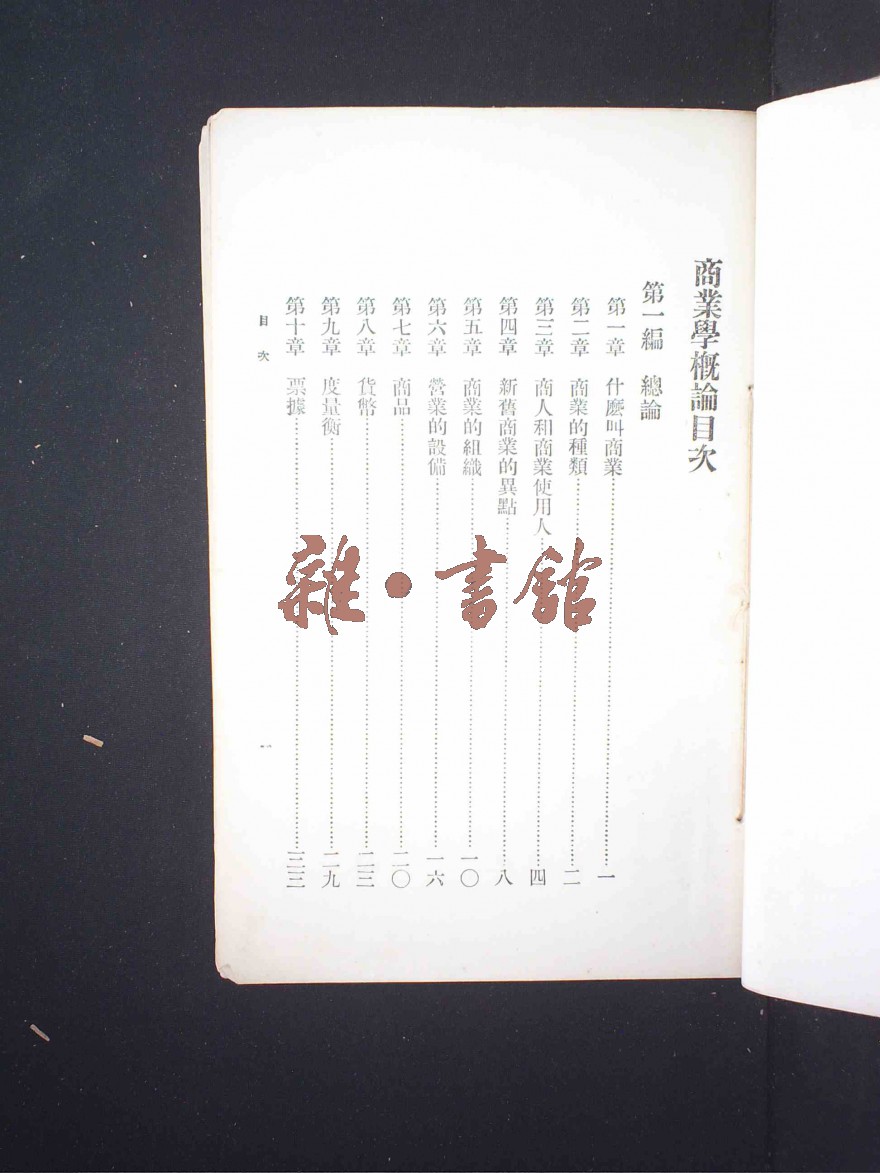 商業學概論目次
第一編 總論
第一章 什麼叫商業……一
第二章 商業的種類……二
第三章 商人和商業使用人……四
第四章 新舊商業的異點……八
第五章 商業的組織……一〇
第六章 營業的設備……一六
第七章 商品……二〇
第八章 貨幣……二三
第九章 度量衡……二九
第十章 票據……三三
目次 一
雜・書館